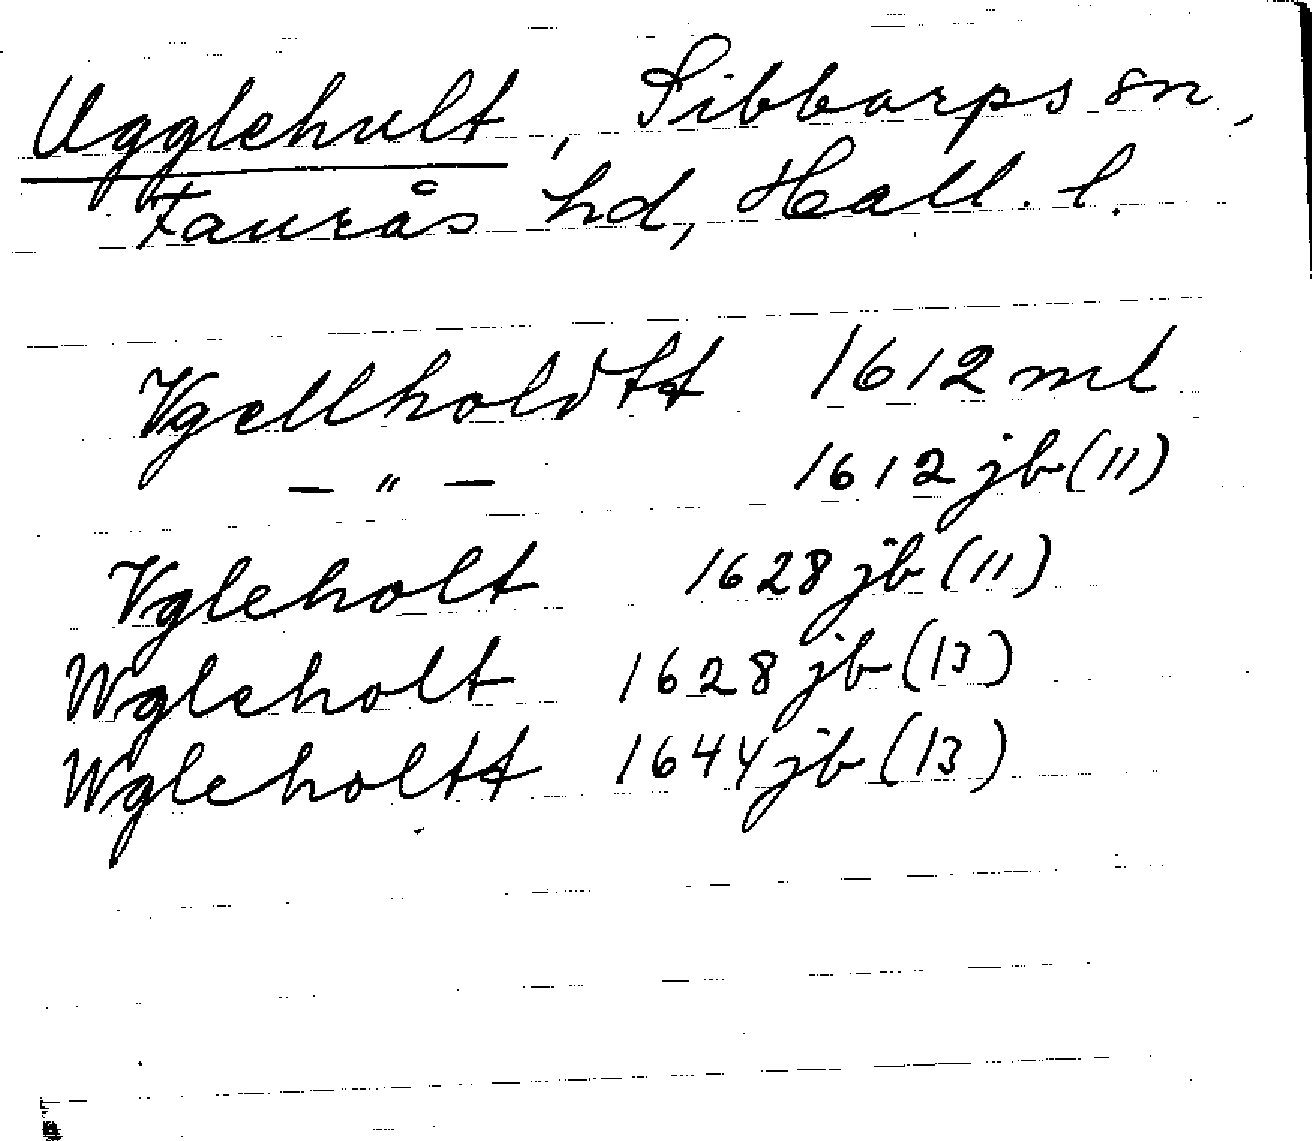 Ugglehult, Sibbarps sn,
Faurås hd, Hall. l.
Vgellholdtt 1612 ml
— " — 1612 jb (11)
Vgleholt 1628 jb (11)
Wgleholt 1628 jb (13)
Wgleholtt 1644 jb (13)